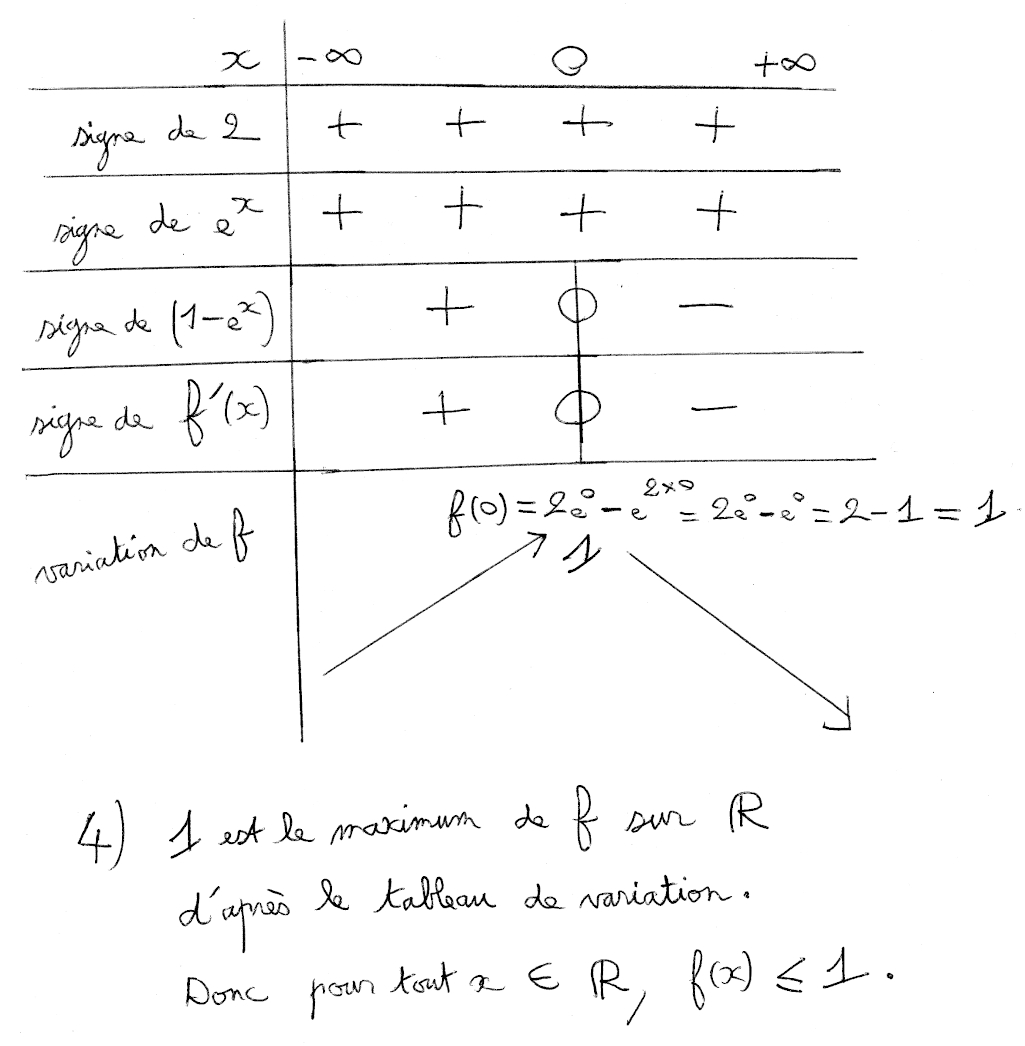 x -∞ 0 +∞
signe de 2 + + + +
signe de eˣ + + + +
signe de (1-eˣ) + 0 -
signe de f'(x) + 0 -
f(0) = 2e⁰ - e²ˣ⁰ = 2e⁰ - e⁰ = 2 - 1 = 1
variation de f 1
4) 1 est le maximum de f sur ℝ
d'après le tableau de variation.
Donc pour tout x ∈ ℝ, f(x) ≤ 1.